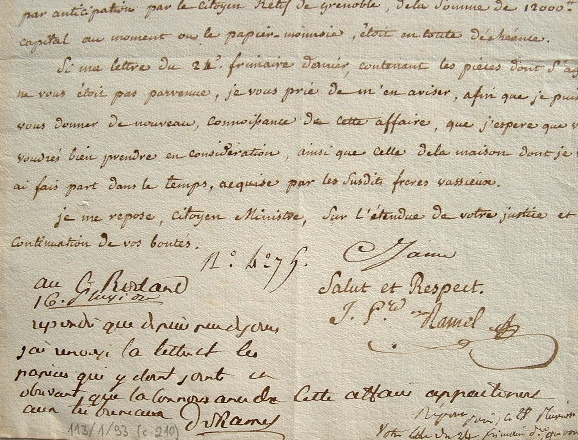 par anticipation par le citoyen Retif de grenoble, dela somme de 12000tt
capital au moment ou le papier-monnoie, étoit en toute déchéance.
Si ma lettre du 24e. frimaire dernier, contenant les pièces dont s'agit
ne vous étoit pas parvenue, je vous prie de m'en aviser, afin que je puisse
vous donner de nouveau, connoissance de cette affaire, que j'espere que v
voudrés bien prendre en considération, ainsi que celle dela maison dont je v
ai fais part dans le temps, acquise par les susdits freres vassieux.
je me repose, citoyen Ministre, sur l'étendue de votre justice et
continuation de vos bontés.
No. 4075.
Salut et Respect.
J. P. Ramel
au C.
16.
repondu que depuis peu de jours
j'ai renvoyé la lettre et les
papiers qui y etoient joints en
observant que la connoissance de cette affaire appartient
aux tribunaux
D. V. Ramel
113/1/93 (c 210)